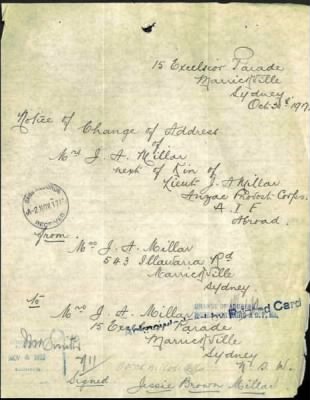 15 Excelsior Parade
Marrickville
Sydney
Notice of
Change of Address
of
Mrs J. A. Millar
next of Kin of
Lieut J. A Millar
Anzac Provost Corps.
A I F
Abroad.
from.
Mrs J. A. Millar
543 Illawarra Rd
Marrickville
Sydney
to
Mrs J. A. Millar
15 Excelsior Parade
Marrickville
Sydney
N. S. W.
Signed
Jessie Brown Millar
CHANGE OF ADDRESS
Card
RECEIVED